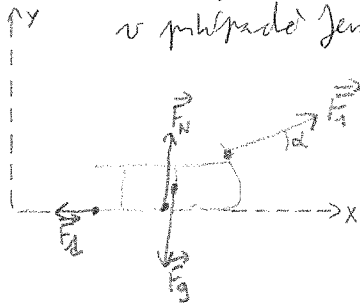 v případě Jen
y
F_N
F_1
α
F_d
x
F_g